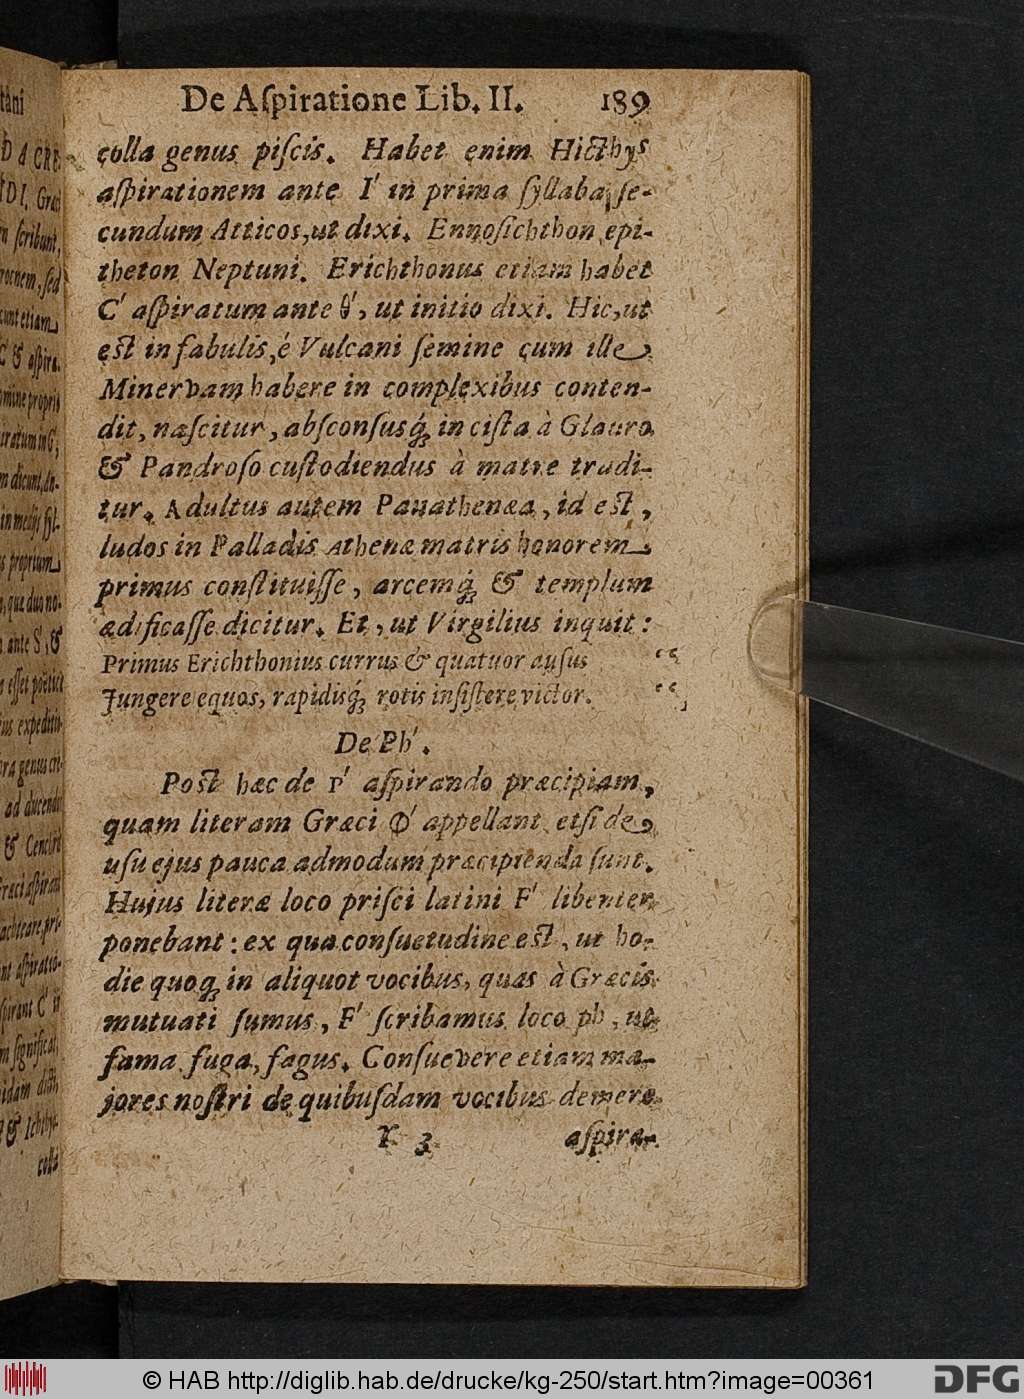 De Aſpiratione Lib. II. 189
colla genus piſcis. Habet enim Hicthys
aſpirationem ante I' in prima ſyllaba, ſe-
cundum Atticos, ut dixi. Ennoſichthon epi-
theton Neptuni. Erichthonus etiam habet
C' aſpiratum ante θ', ut initio dixi. Hic, ut
est in fabulis, é Vulcani ſemine cum ille
Minervam habere in complexibus conten-
dit, naſcitur, abſconſusq́; in ciſta à Glauro
& Pandroſo cuſtodiendus à matre tradi-
tur. Adultus autem Panathenæa, id est,
ludos in Palladis Athenæ matris honorem
primus conſtituiſſe, arcemq́; & templum
ædificaſſe dicitur. Et, ut Virgilius inquit:
Primus Erichthonius currus & quatuor auſus
Jungere equos, rapidisq́; rotis inſiſtere victor.
De Ph'.
Post hæc de P' aſpirando præcipiam,
quam literam Græci Φ' appellant etſi de
uſu ejus pauca admodum præcipienda ſunt.
Hujus literæ loco priſci latini F' libenter
ponebant: ex qua conſuetudine est, ut ho-
die quoq; in aliquot vocibus, quas à Græcis
mutuati ſumus, F' ſcribamus loco ph, ut
fama fuga, fagus. Conſuevere etiam ma-
jores noſtri de quibuſdam vocibus demere
Y 3 aſpira-
© HAB http://diglib.hab.de/drucke/kg-250/start.htm?image=00361
DFG